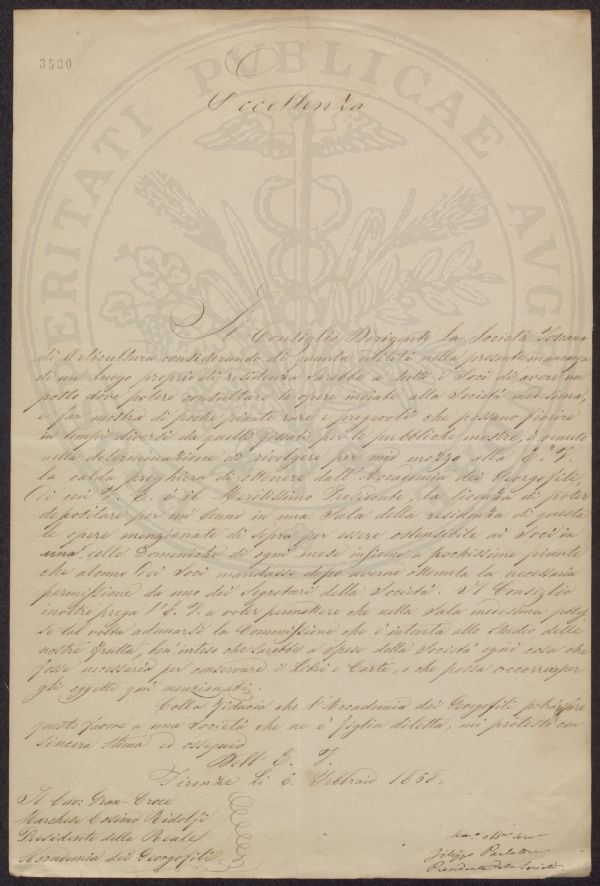 3530
Eccellenza
Il Consiglio Dirigente la Società Toscana
di Orticultura considerando di quanta utilità nella presente mancanza
di un luogo proprio di residenza sarebbe a tutti i Soci di avere un
posto dove potere consultare le opere inviate alla Società medesima,
e far mostra di poche piante rare e pregevoli che possano fiorire
in tempi diversi da quelli fissati per le pubbliche mostre, è venuto
nella determinazione di rivolgere per mio mezzo alla E. V.
la calda preghiera di ottenere dall'Accademia dei Georgofili,
di cui V. E. è il Meritissimo Presidente, la licenza di poter
depositare per un anno in una Sala della residenza di questa
le opere menzionate di sopra per essere ostensibile ai Soci in
una delle Domeniche di ogni mese insieme a pochissime piante
che alcuno dei Soci mandasse dopo averne ottenuta la necessaria
permissione da uno dei Segretari della Società. Il Consiglio
inoltre prega l'E. V. a voler permettere che nella Sala medesima pos
se tal volta adunarsi la Commissione che è intenta allo Studio delle
nostre frutta, ben inteso che sarebbe a spese della Società ogni cosa che
fosse necessaria per conservare i Libri e Carte, e che possa occorrere per
gli oggetti qui menzionati.
Colla fiducia che l'Accademia dei Georgofili
questo favore a una Società che ne è figlia diletta, mi protesto con
sincera stima ed ossequio
Dell' E. V.
Firenze li 6. Febbraio 1858.
Il Cav. Gran Croce
Marchese Cosimo Ridolfi
Presidente della Reale
Accademia dei Georgofili
Filippo Parlatore
Presidente della Società
PROSPERITATI PVBLICAE AVG